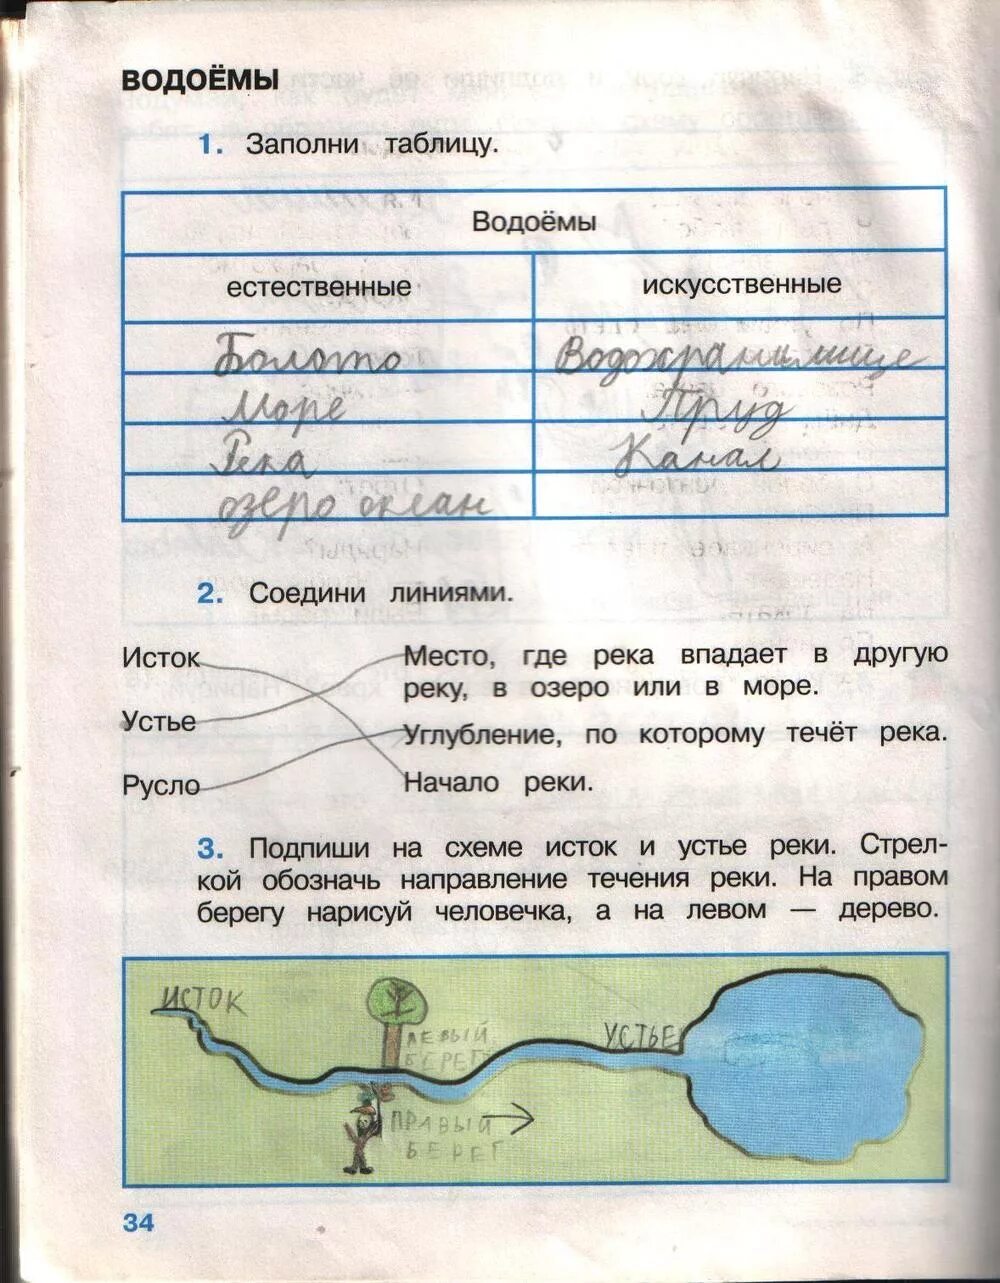 ВОДОЁМЫ
1. Заполни таблицу.
Водоёмы
естественные искусственные
Болото Водохранилище
Море Пруд
Река Канал
озеро океан
2. Соедини линиями.
Исток
Устье
Русло
Место, где река впадает в другую
реку, в озеро или в море.
Углубление, по которому течёт река.
Начало реки.
3. Подпиши на схеме исток и устье реки. Стрел-
кой обозначь направление течения реки. На правом
берегу нарисуй человечка, а на левом — дерево.
ИСТОК
ЛЕВЫЙ
БЕРЕГ
УСТЬЕ
ПРАВЫЙ
БЕРЕГ
34